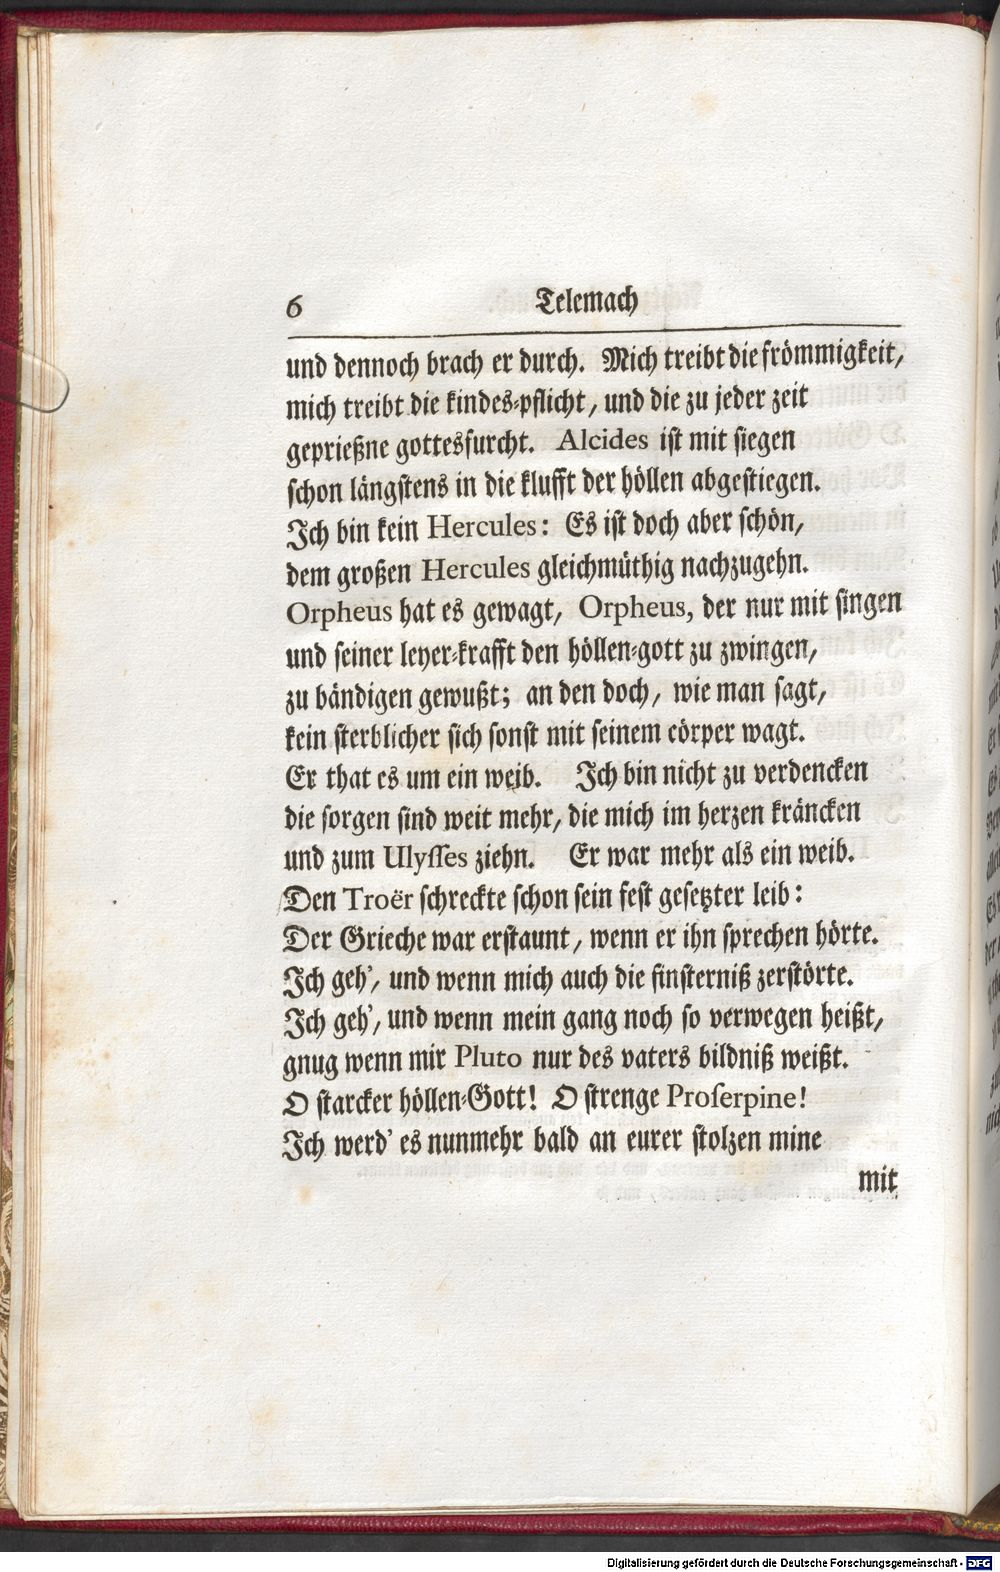 6 Telemach
und dennoch brach er durch. Mich treibt die frömmigkeit,
mich treibt die kindes-pflicht, und die zu jeder zeit
geprießne gottesfurcht. Alcides ist mit siegen
schon längstens in die klufft der höllen abgestiegen.
Ich bin kein Hercules: Es ist doch aber schön,
dem großen Hercules gleichmüthig nachzugehn.
Orpheus hat es gewagt, Orpheus, der nur mit singen
und seiner leyer-krafft den höllen-gott zu zwingen,
zu bändigen gewußt; an den doch, wie man sagt,
kein sterblicher sich sonst mit seinem cörper wagt.
Er that es um ein weib. Ich bin nicht zu verdencken
die sorgen sind weit mehr, die mich im herzen kräncken
und zum Ulysses ziehn. Er war mehr als ein weib.
Den Troër schreckte schon sein fest gesetzter leib:
Der Grieche war erstaunt, wenn er ihn sprechen hörte.
Ich geh', und wenn mich auch die finsterniß zerstörte.
Ich geh', und wenn mein gang noch so verwegen heißt,
gnug wenn mir Pluto nur des vaters bildniß weißt.
O starcker höllen-Gott! O strenge Proserpine!
Ich werd' es nunmehr bald an eurer stolzen mine
mit
Digitalisierung gefördert durch die Deutsche Forschungsgemeinschaft - DFG